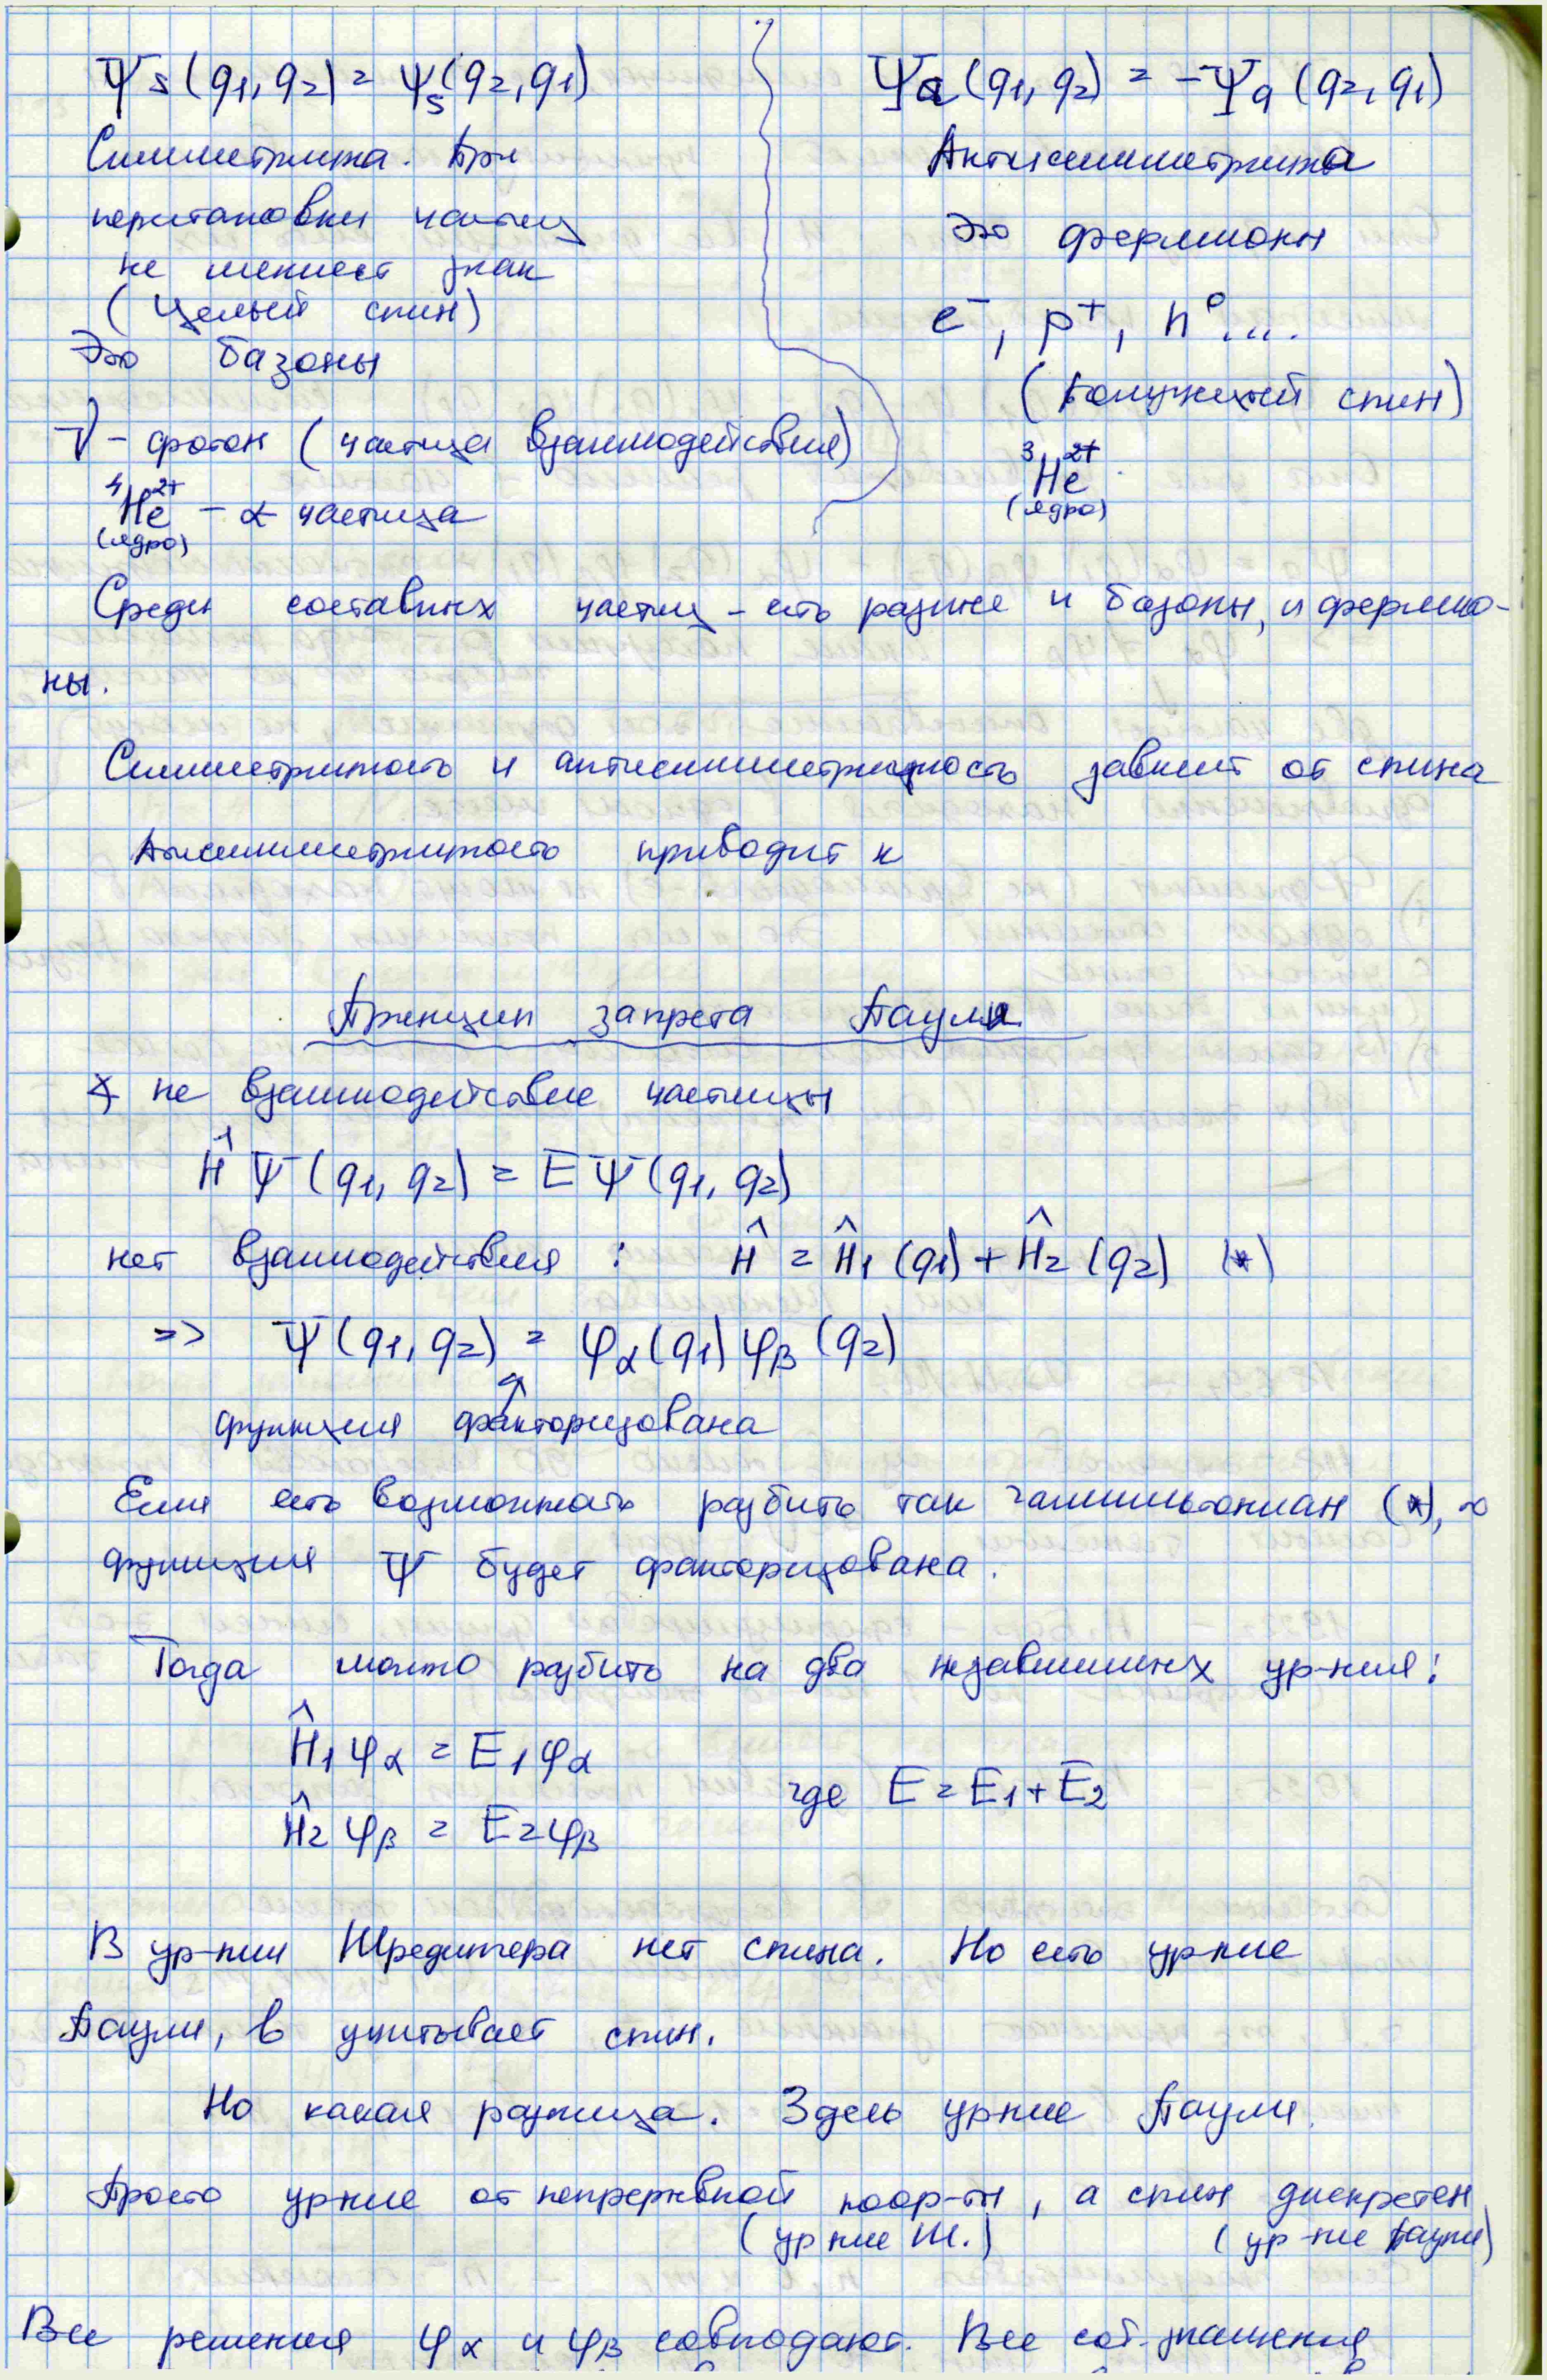 Ψs(q1, q2) = Ψs(q2, q1)
Симметрична. При
перестановки частиц
не меняет знак
(целый спин)
Это базоны
γ - фотон (частица взаимодействия)
⁴He²⁺ - α частица
(ядро)
Ψa(q1, q2) = -Ψa(q2, q1)
Антисимметрична
Это фермионы
e⁻, p⁺, n⁰....
(Полуцелый спин)
³He²⁺
(ядро)
Среди составных частиц - есть разные и базоны, и фермио-
ны.
Симметричность и антисимметричность зависит от спина
Антисимметричность приводит к
Принцип запрета Паули
не взаимодействие частицы
ĤΨ(q1, q2) = EΨ(q1, q2)
нет взаимодействия : Ĥ = Ĥ1(q1) + Ĥ2(q2) (*)
=> Ψ(q1, q2) = φα(q1)φβ(q2)
функция факторизована
Если есть возможность разбить так гамильтониан (*), то
функция Ψ будет факторизована.
Тогда можно разбить на два независимых ур-ния:
Ĥ1φα = E1φα
Ĥ2φβ = E2φβ
где E = E1 + E2
В ур-нии Шредингера нет спина. Но есть урние
Паули, в учитывает спин.
Но какая разница. Здесь урние Паули.
Просто урние от непрерывной коор-ты, а спин дискретен
(урние Ш.) (ур-ние Паули)
Все решения φα и φβ совподают. Все соб. значения